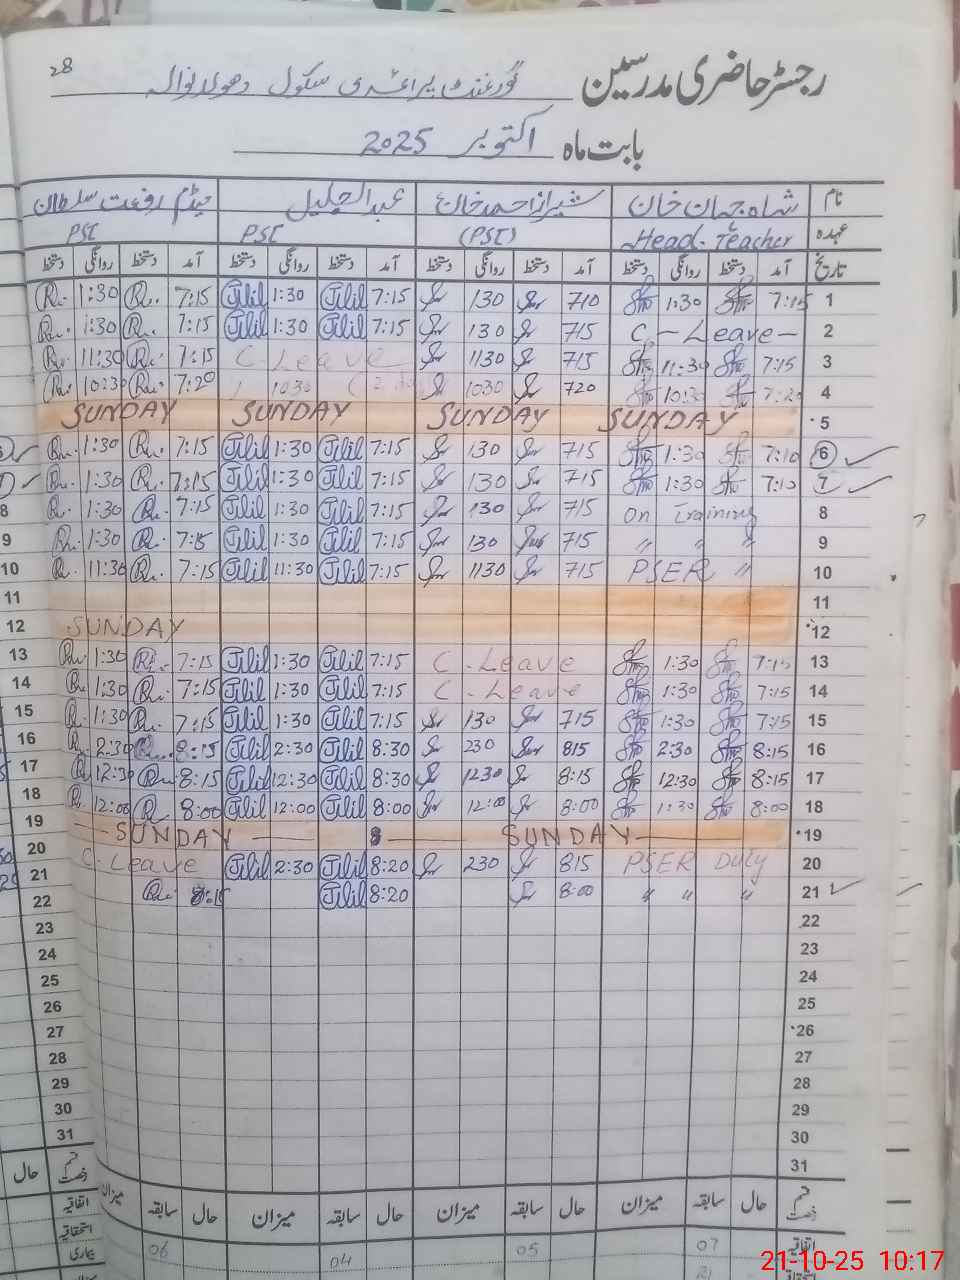 28
رجسٹر حاضری مدرسین گورنمنٹ پرائمری سکول دھولانوالہ
بابت ماہ اکتوبر 2025
نام شاہ جہان خان شیراز احمد خان عبدالجلیل میڈم رفعت سلطان
عہدہ Head-Teacher (PST) PST PST
تاریخ آمد دستخط روانگی دستخط آمد دستخط روانگی دستخط آمد دستخط روانگی دستخط آمد دستخط روانگی دستخط
1:30 7:15 Jlil 1:30 Jlil 7:15 130 710 1:30 7:15 1
1:30 7:15 Jlil 1:30 Jlil 7:15 130 715 C - Leave - 2
11:30 7:15 C - Leave 1130 715 11:30 7:15 3
10:30 7:20 1030 1030 720 10:30 7:20 4
SUNDAY SUNDAY SUNDAY SUNDAY 5
1:30 7:15 Jlil 1:30 Jlil 7:15 130 715 1:30 7:10 6
1:30 7:15 Jlil 1:30 Jlil 7:15 130 715 1:30 7:10 7
8 1:30 7:15 Jlil 1:30 Jlil 7:15 130 715 On Training 8
9 1:30 7:15 Jlil 1:30 Jlil 7:15 130 715 " " " 9
10 11:30 7:15 Jlil 11:30 Jlil 7:15 1130 715 PSER " 10
11 11
12 SUNDAY 12
13 1:30 7:15 Jlil 1:30 Jlil 7:15 C - Leave 1:30 7:15 13
14 1:30 7:15 Jlil 1:30 Jlil 7:15 C - Leave 1:30 7:15 14
15 1:30 7:15 Jlil 1:30 Jlil 7:15 130 715 1:30 7:15 15
16 2:30 8:15 Jlil 2:30 Jlil 8:30 230 815 2:30 8:15 16
17 12:30 8:15 Jlil 12:30 Jlil 8:30 1230 8:15 12:30 8:15 17
18 12:00 8:00 Jlil 12:00 Jlil 8:00 12:00 8:00 1:30 8:00 18
19 SUNDAY SUNDAY 19
20 C - Leave Jlil 2:30 Jlil 8:20 230 815 PSER Duty 20
21 8:15 Jlil 8:20 8:00 " " " 21
22 22
23 23
24 24
25 25
26 26
27 27
28 28
29 29
30 30
31 31
قسم رخصت حال سابقہ میزان حال سابقہ میزان حال سابقہ میزان حال سابقہ میزان قسم رخصت حال
اتفاقیہ 07 05 04 06 اتفاقیہ
استحقاقیہ
بیماری
21-10-25 10:17